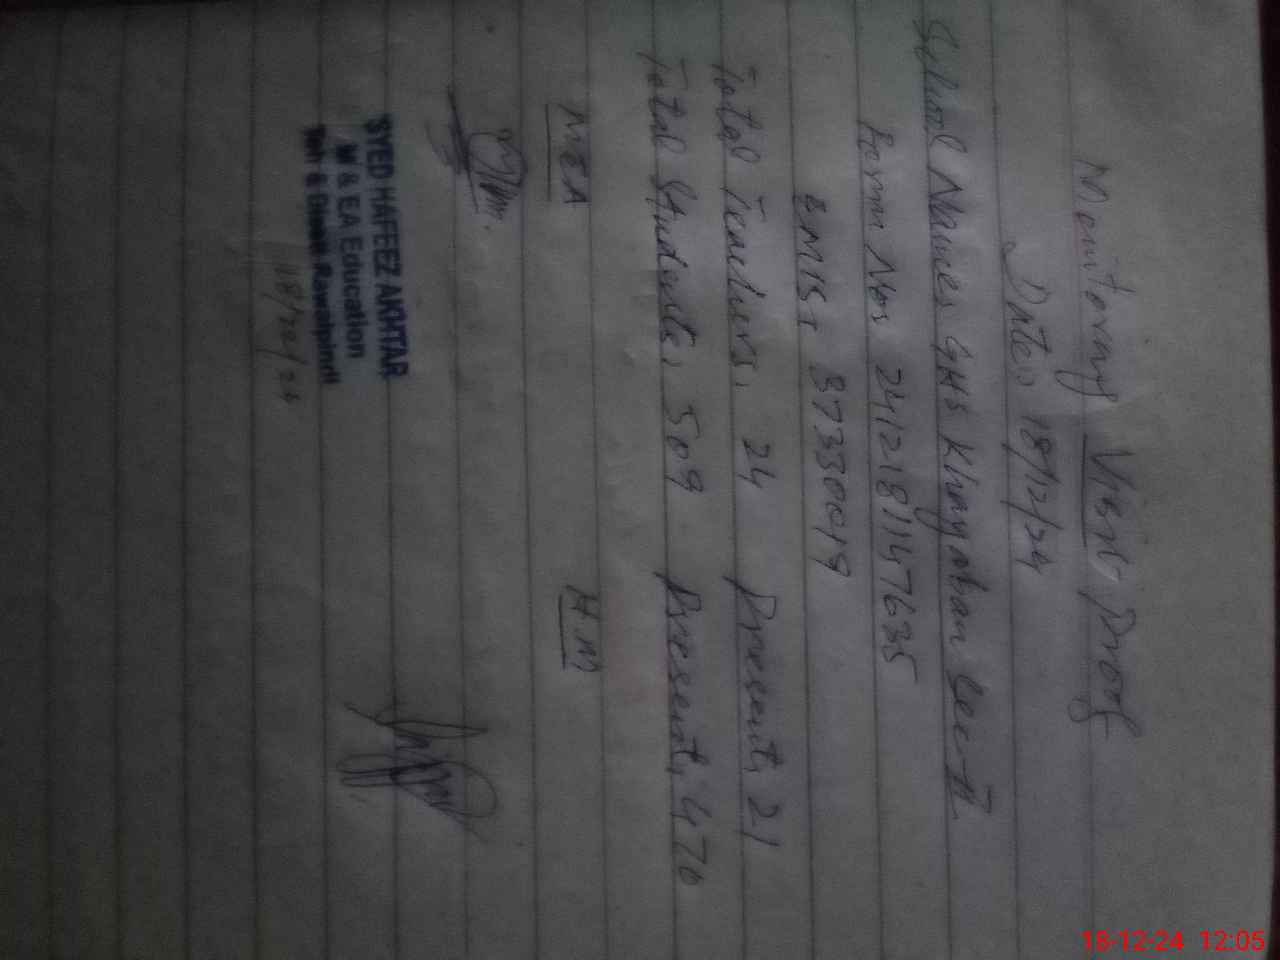 Monitoring Visit Proof
Date: 18/12/24
School Name: GHS Khayaban Sec-II
Form No: 2412181147635
EMIS: 37330019
Total Teachers: 24 Present: 21
Total Students: 509 Present: 470
MEA H.M
SYED HAFEEZ AKHTAR
M & EA Education
Teh & Distt Rawalpindi
18/12/24
18-12-24 12:05